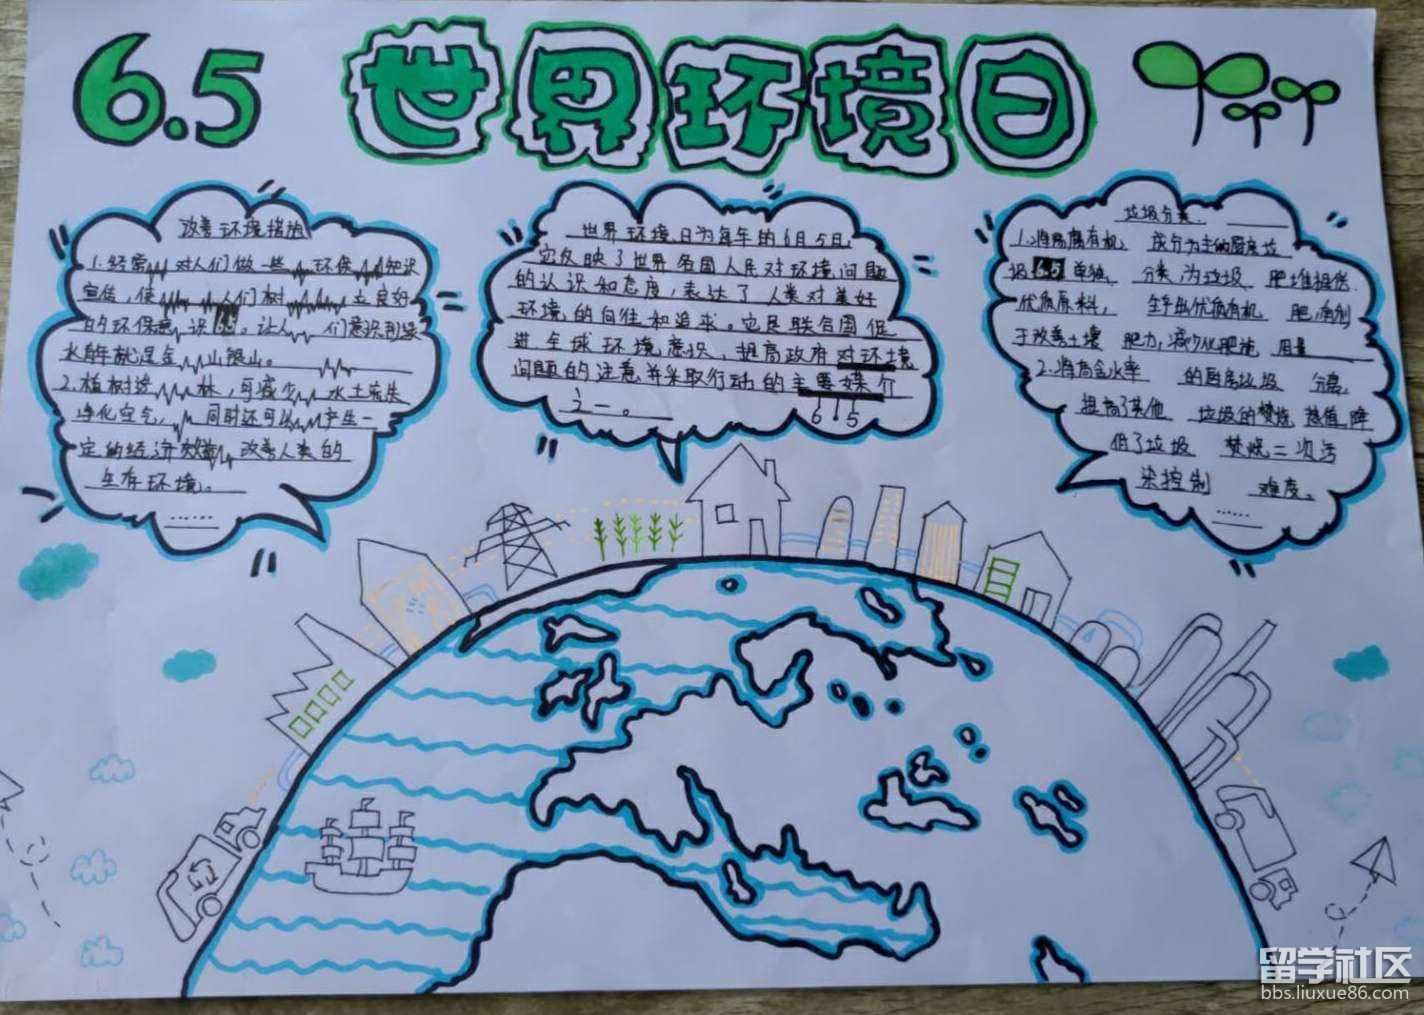 6.5 世界环境日
改善环境措施
1.经常 对人们做一些 环保 知识
宣传,使 人们树 立良好
的环保意 识 6.5。让人 们意识到绿
水青山就是金 山银山。
2.植树造 林,可减少 水土流失
净化空气, 同时还可以 产生一
定的经济效益 改善人类的
生存环境。
……
世界环境日为每年的6月5日,
它反映了世界各国人民对环境问题
的认识和态度,表达了人类对美好
环境的向往和追求。它是联合国促
进全球环境意识、提高政府对环境
问题的注意并采取行动的主要媒介
之一。
6.5
垃圾分类.
1.将易腐有机 成分为主的厨房垃
圾 6.5 单独 分类,为垃圾 肥堆提供
优质原料, 生产出优质有机 肥,有利
于改善土壤 肥力,减少化肥施 用量
2.将高含水率 的厨房垃圾 分离,
提高了其他 垃圾的焚烧 热值,降
低了垃圾 焚烧二次污
染控制 难度。
……
留学社区
bbs.liuxue86.com